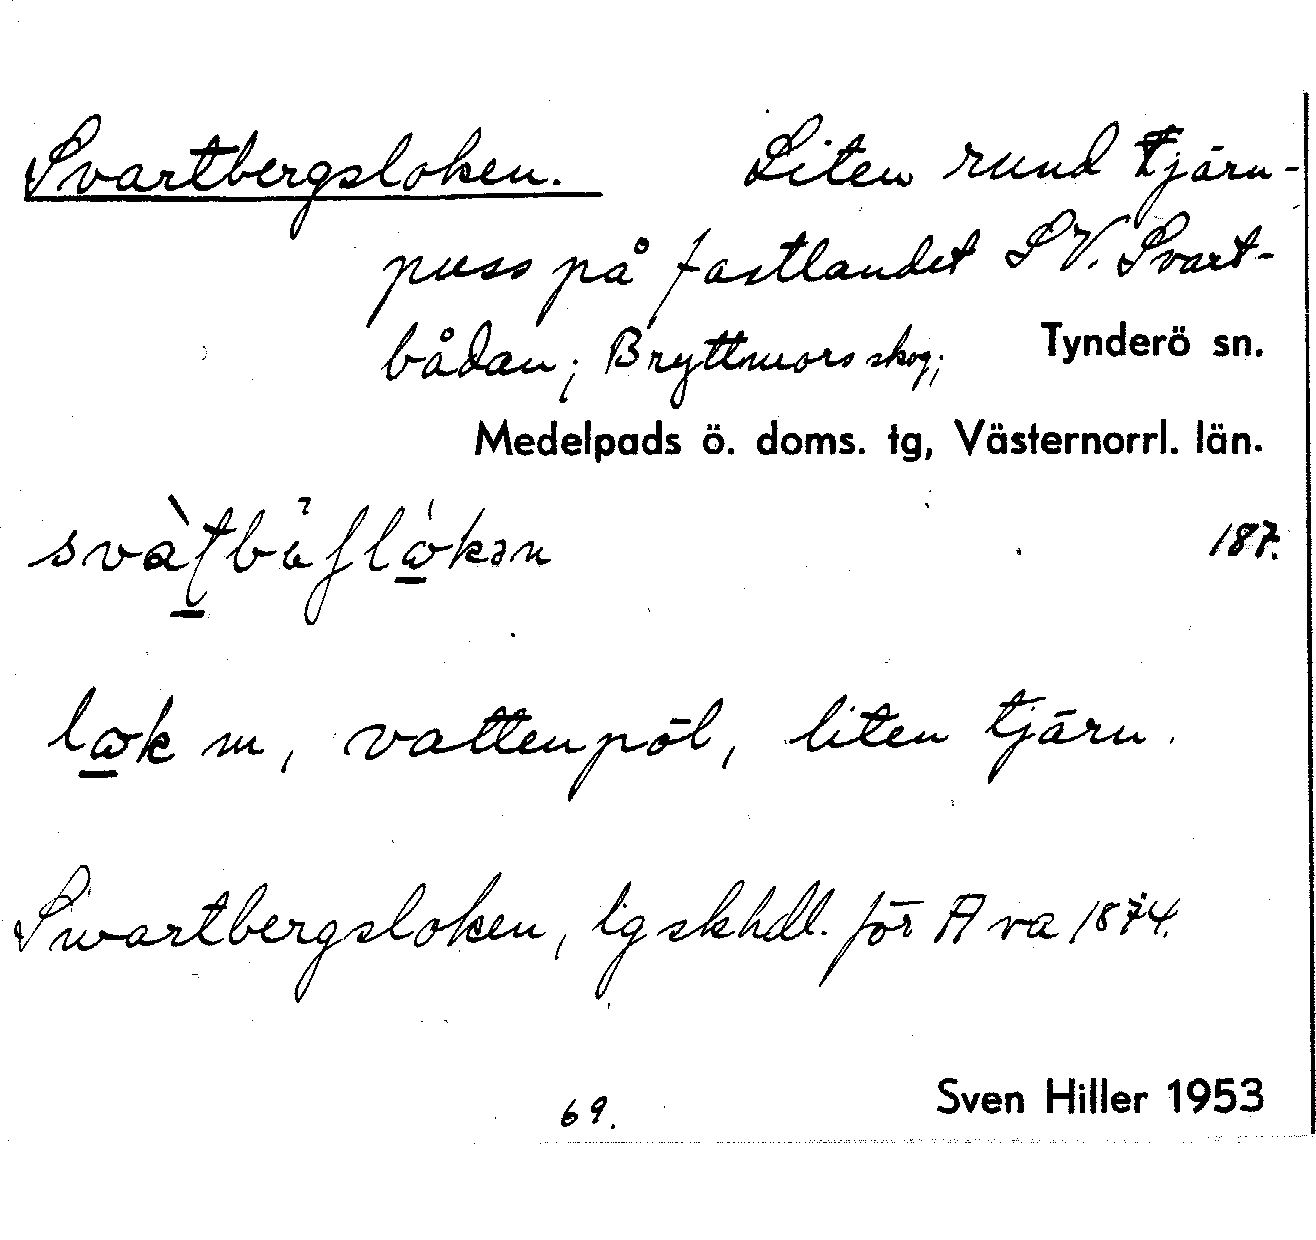 Svartbergsloken. Liten rund tjärn-
puss på fastlandet SV. Svart-
bådan; Bryttmors skog; Tynderö sn.
Medelpads ö. doms. tg, Västernorrl. län.
187.
m, vattenpöl, liten tjärn.
Swartbergsloken, lgskhdl. för Åva 1874.
69. Sven Hiller 1953